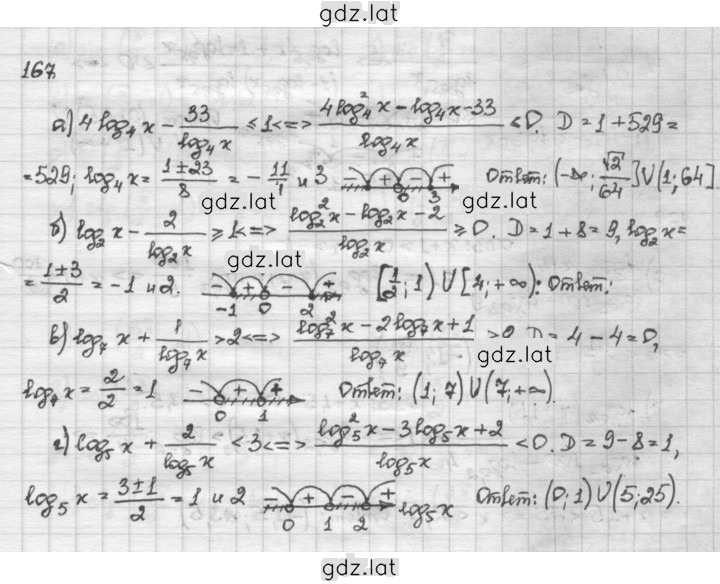 gdz.lat
167
а) 4 log₄x − 33/log₄x ≤ 1 <=> (4log₄²x − log₄x − 33)/log₄x ≤ 0. D = 1 + 529 =
= 529; log₄x = (1±23)/8 = − 11/4 и 3 − + − + 0 3 Ответ: (−∞; √2/64] ∪ (1; 64]
gdz.lat gdz.lat
б) log₂x − 2/log₂x ≥ 1 <=> (log₂²x − log₂x − 2)/log₂x ≥ 0. D = 1 + 8 = 9, log₂x =
gdz.lat
= (1±3)/2 = −1 и 2. − + − + −1 0 2 [1/2; 1) ∪ [4; +∞): Ответ:
в) log₇x + 1/log₇x > 2 <=> (log₇²x − 2log₇x + 1)/log₇x > 0. D = 4 − 4 = 0,
gdz.lat gdz.lat
log₇x = 2/2 = 1 − + + 0 1 Ответ: (1; 7) ∪ (7; +∞).
г) log₅x + 2/log₅x < 3 <=> (log₅²x − 3log₅x + 2)/log₅x < 0. D = 9 − 8 = 1,
log₅x = (3±1)/2 = 1 и 2 − + − + 0 1 2 log₅x Ответ: (0; 1) ∪ (5; 25).
gdz.lat